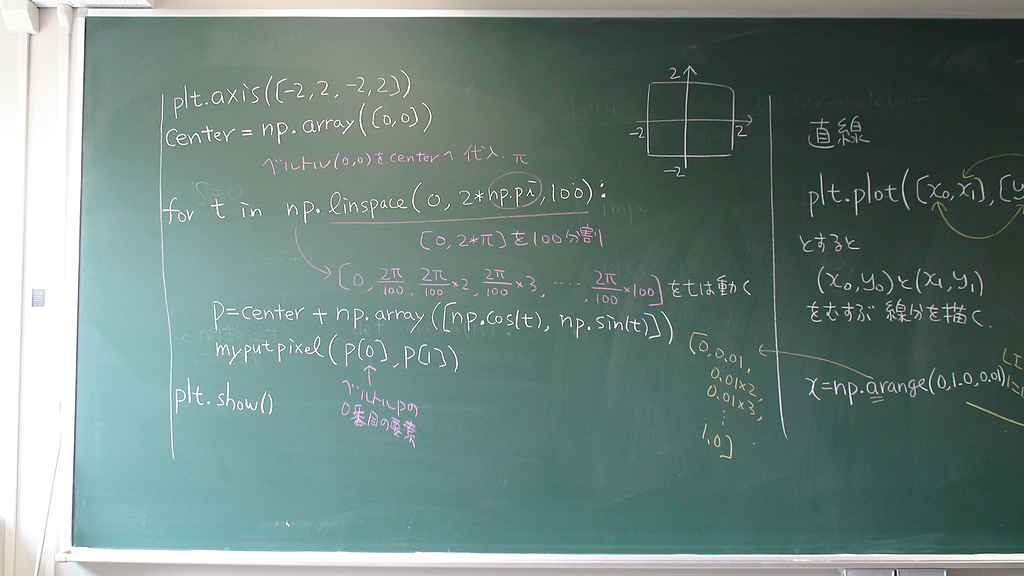 plt.axis([-2, 2, -2, 2])
center = np.array([0, 0])
ベクトル(0,0)をcenterへ代入. π
for t in np.linspace(0, 2*np.pi, 100):
[0, 2*π]を100分割
[0, 2π/100, 2π/100×2, 2π/100×3, ...., 2π/100×100]をtは動く
p=center + np.array([np.cos(t), np.sin(t)])
myputpixel(p[0], p[1])
ベクトルpの
0番目の要素
plt.show()
2
-2
2
-2
[0, 0.01,
0.01×2,
0.01×3,
⋮
1.0]
直線
plt.plot([x₀, x₁], [y
とすると
(x₀, y₀)と(x₁, y₁)
をむすぶ 線分を描く.
x=np.arange(0, 1.0, 0.01)